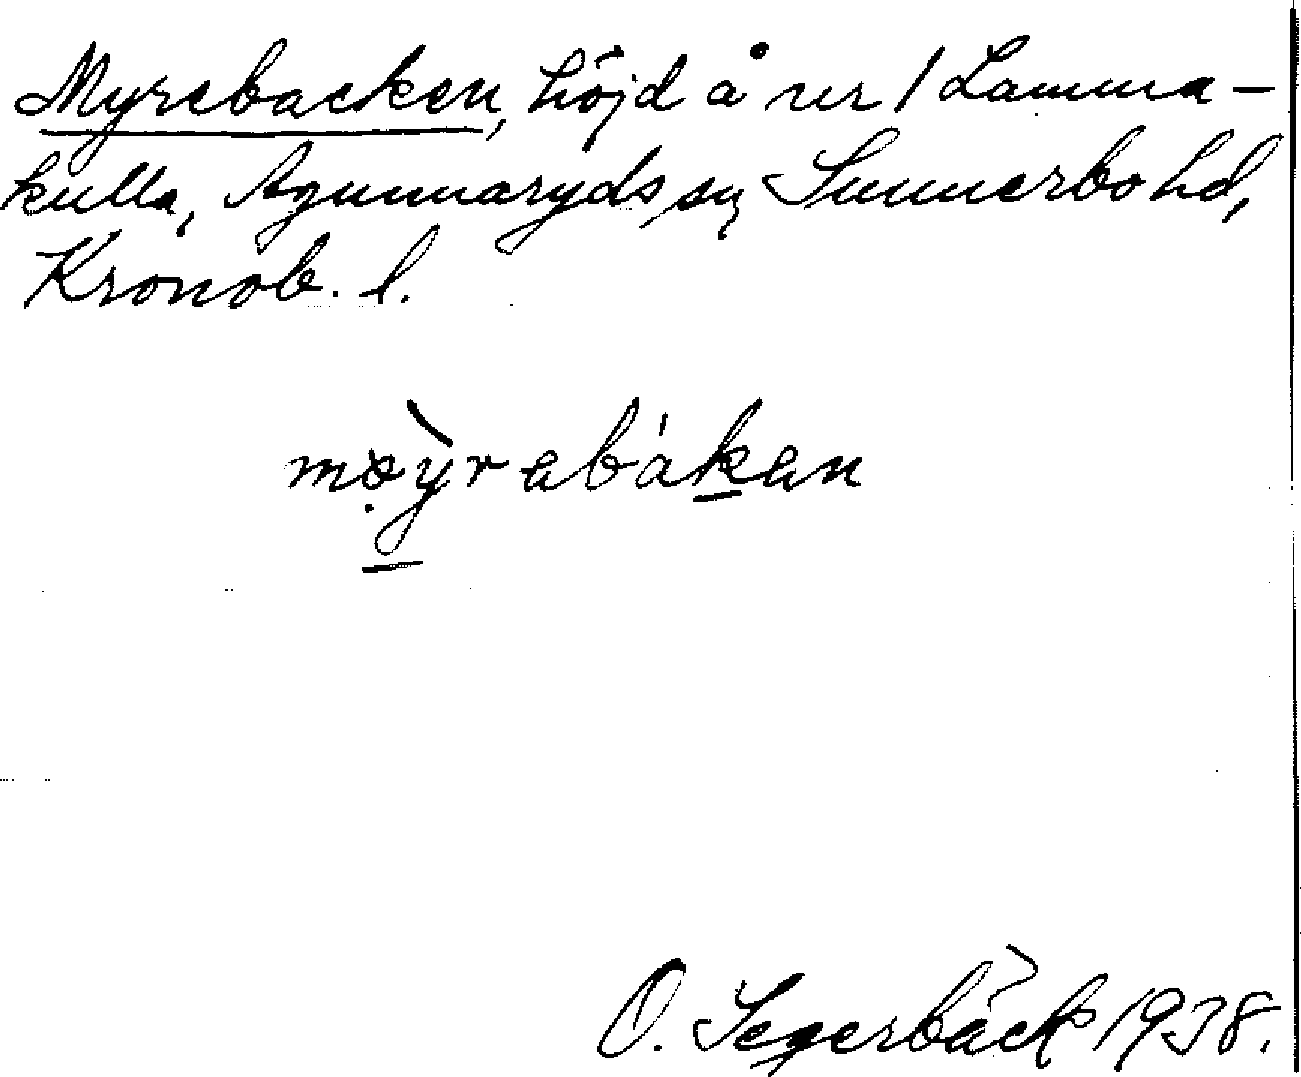 Myrebacken, höjd å nr 1 Lamma-
kulla, Agunnaryds sn, Sunnerbo hd,
Kronob. l.
mø̣̀yrabákan
O. Segerbäck 1938.